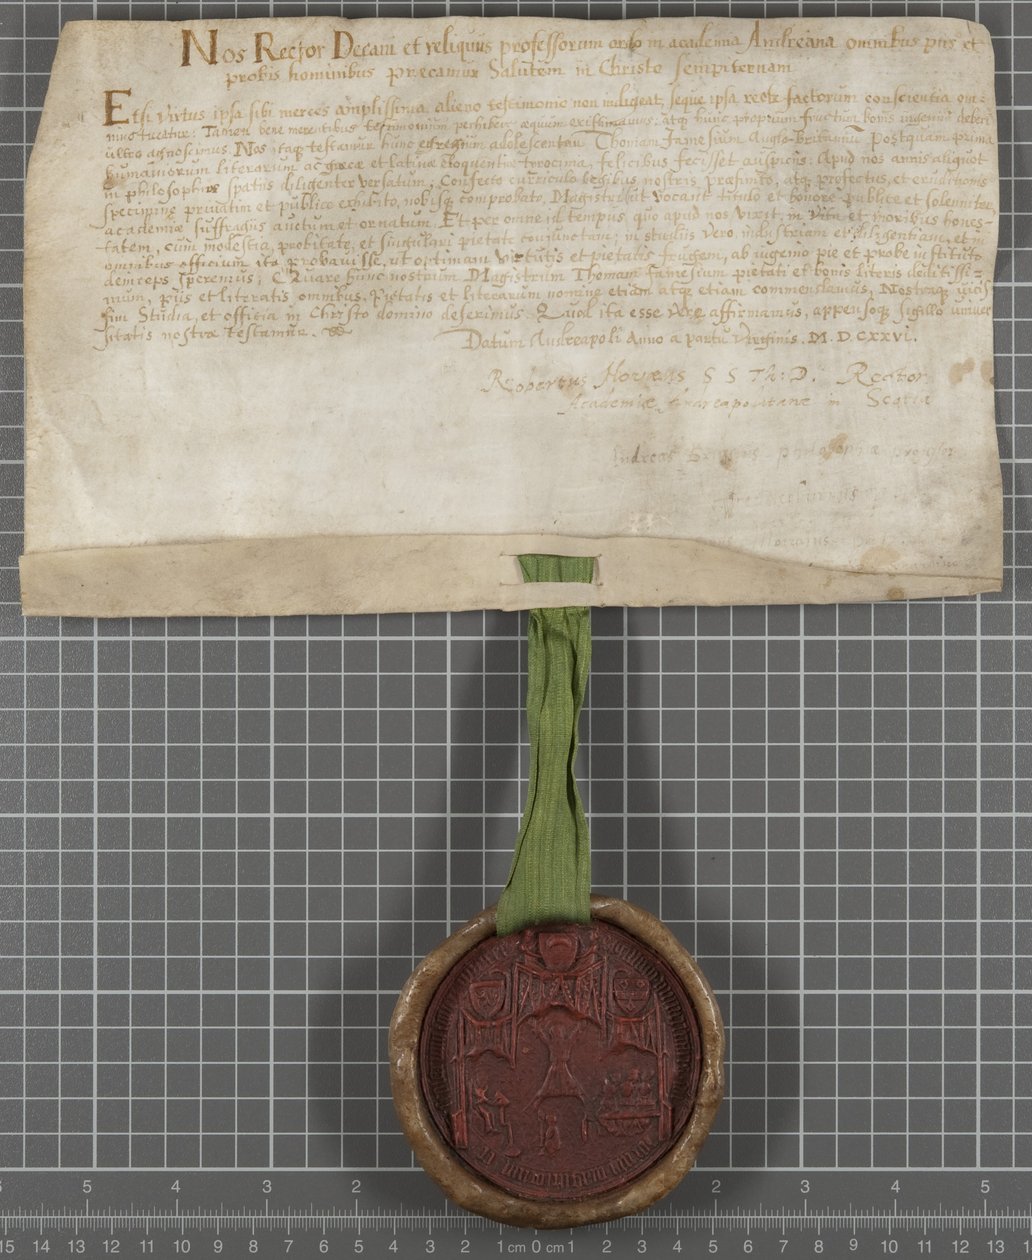 Nos Rector Decani et reliquus professorum ordo in academia Andreana omnibus piis et
probis hominibus præcamur Salutem in Christo sempiternam
Etsi virtus ipsa sibi merces amplissima, alieno testimonio non indigeat, seque ipsa recte factorum conscientia om
tueatur: Tamen bene merentibus testimonium perhibere æquum existimamus: atq hunc proprium fructum bonis ingeniis deberi
ultro agnoscimus. Nos itaq testamur hunc egregium adolescentem Thomam Jamesium Anglo-Britannū Postquam prima
humaniorum literarum ac græcæ et latinæ eloquentiæ tyrocinia, felicibus fecisset auspiciis: Apud nos annis aliquot
in philosophiæ spatiis diligenter versatum; Confecto curriculo legibus nostris præfinito, atq profectus, et eruditionis
specimine privatim et publice exhibito, nobisq comprobato, Magistri ut vocant titulo et honore publice et solenniter,
academiæ suffragiis auctum et ornatum. Et per omne id tempus, quo apud nos vixit, in vita et moribus hones-
-tatem, cum modestia, probitate, et singulari pietate conjunctam; in studiis vero industriam et diligentiam, et in
omnibus officium ita probavisse, ut optimam virtutis et pietatis frugem, ab ingenio pie et probe instituto
deinceps speremus; Quare hunc nostrum Magistrum Thomam Jamesium pietati et bonis literis deditissi=
mum, piis et literatis omnibus, Pietatis et literarum nomine etiam atq etiam commendamus; Nostraq vicis
sim Studia, et officia in Christo domino deferimus. Quod ita esse vere affirmamus, appensoq sigillo univer
sitatis nostræ testamur.
Datum Andreapoli Anno a partu virginis. M. D. CXXVI.
Robertus Hovæus S S Th: D. Rector
Academiæ Andreapolitanæ in Scotia
Andreas philosophiæ professor